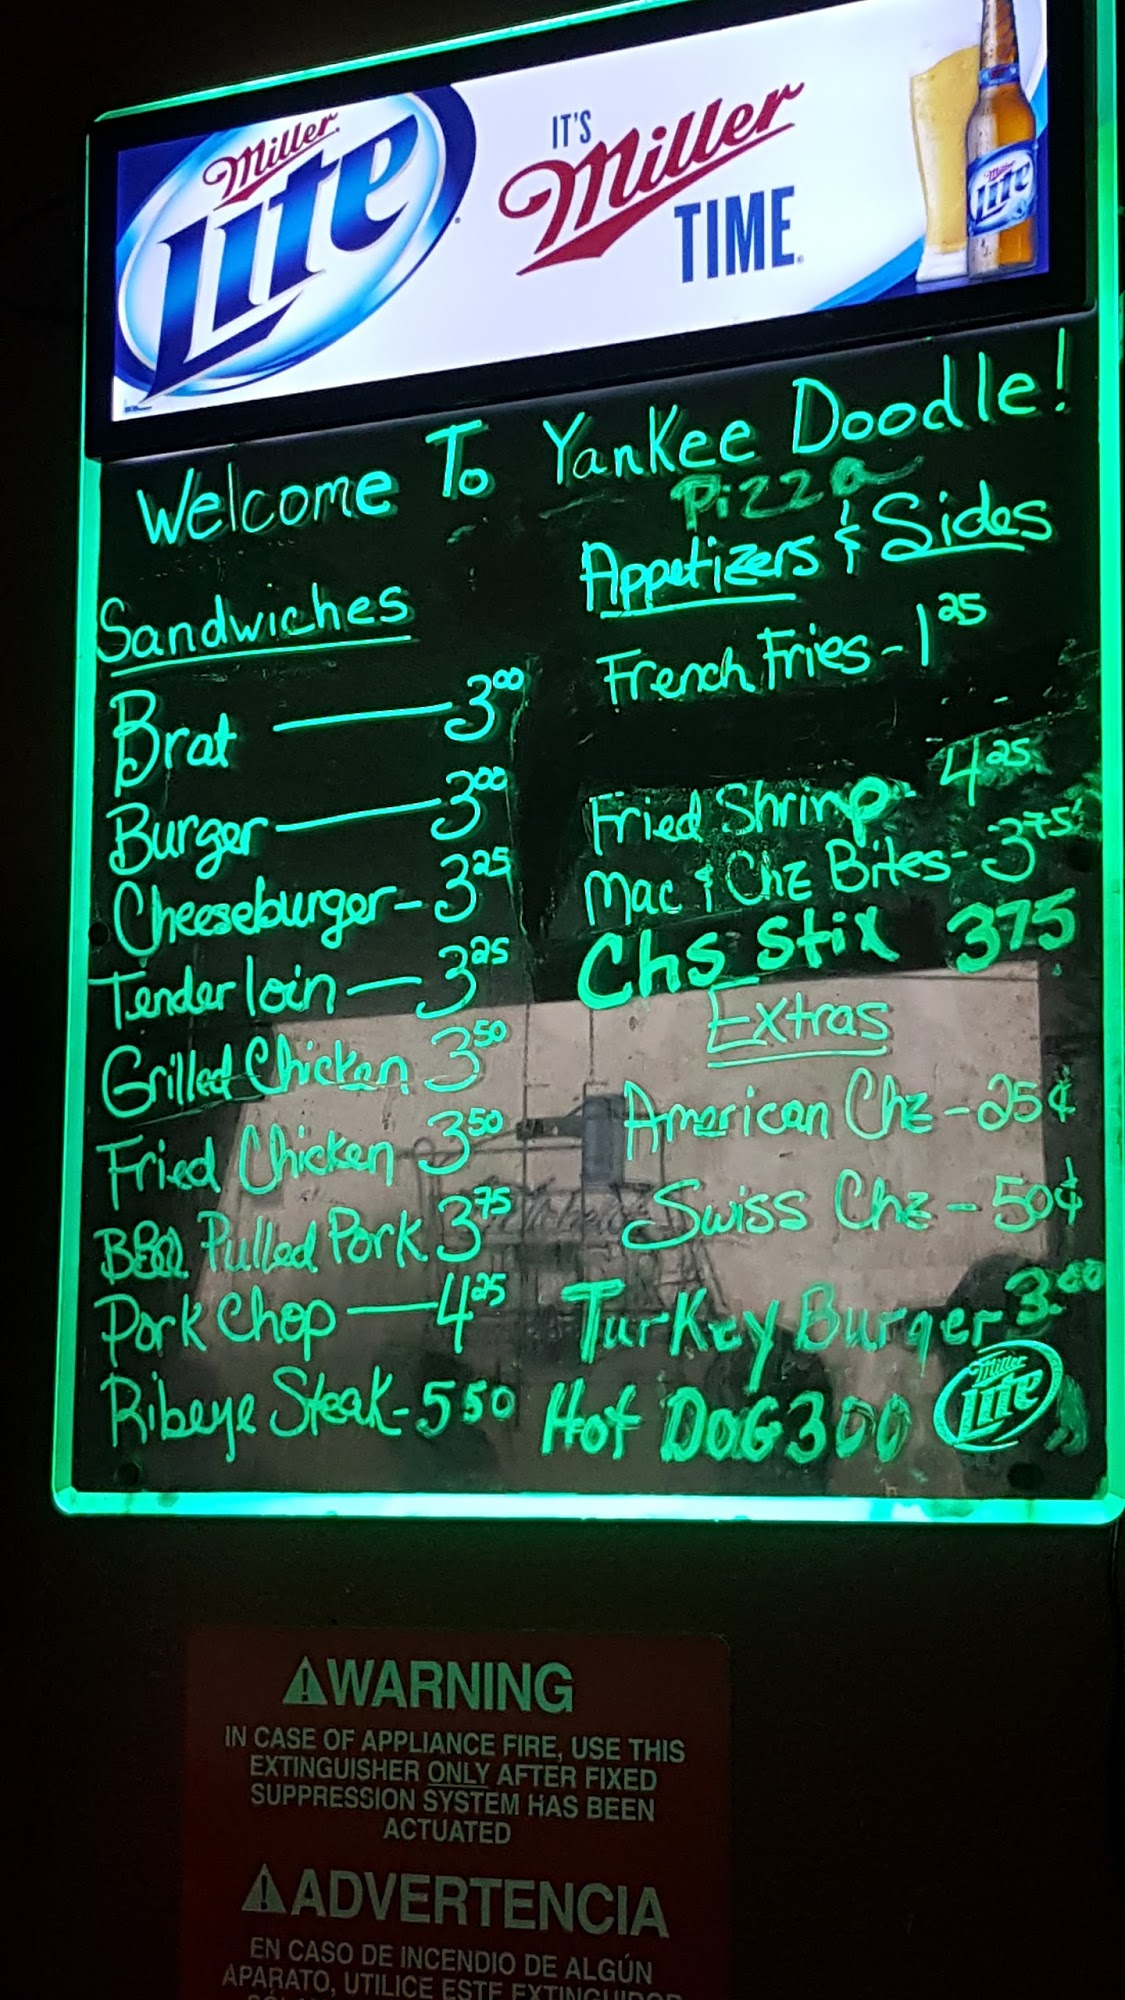 Miller
Lite
IT'S
Miller
TIME
Lite
Welcome To Yankee Doodle!
Pizza
Sandwiches
Brat — 3.00
Burger — 3.00
Cheeseburger - 3.25
Tenderloin — 3.25
Grilled Chicken 3.50
Fried Chicken 3.50
BBQ Pulled Pork 3.75
Pork Chop — 4.25
Ribeye Steak - 5 50
Appetizers & Sides
French Fries - 1 25
Fried Shrimp - 4 25
Mac & Chz Bites - 3 75
Chs Stix 375
Extras
American Chz - 25¢
Swiss Chz - 50¢
Turkey Burger 3.00
Hot DoG 300
Miller
Lite
WARNING
IN CASE OF APPLIANCE FIRE, USE THIS
EXTINGUISHER ONLY AFTER FIXED
SUPPRESSION SYSTEM HAS BEEN
ACTUATED
ADVERTENCIA
EN CASO DE INCENDIO DE ALGÚN
APARATO, UTILICE ESTE EXTINGUIDOR